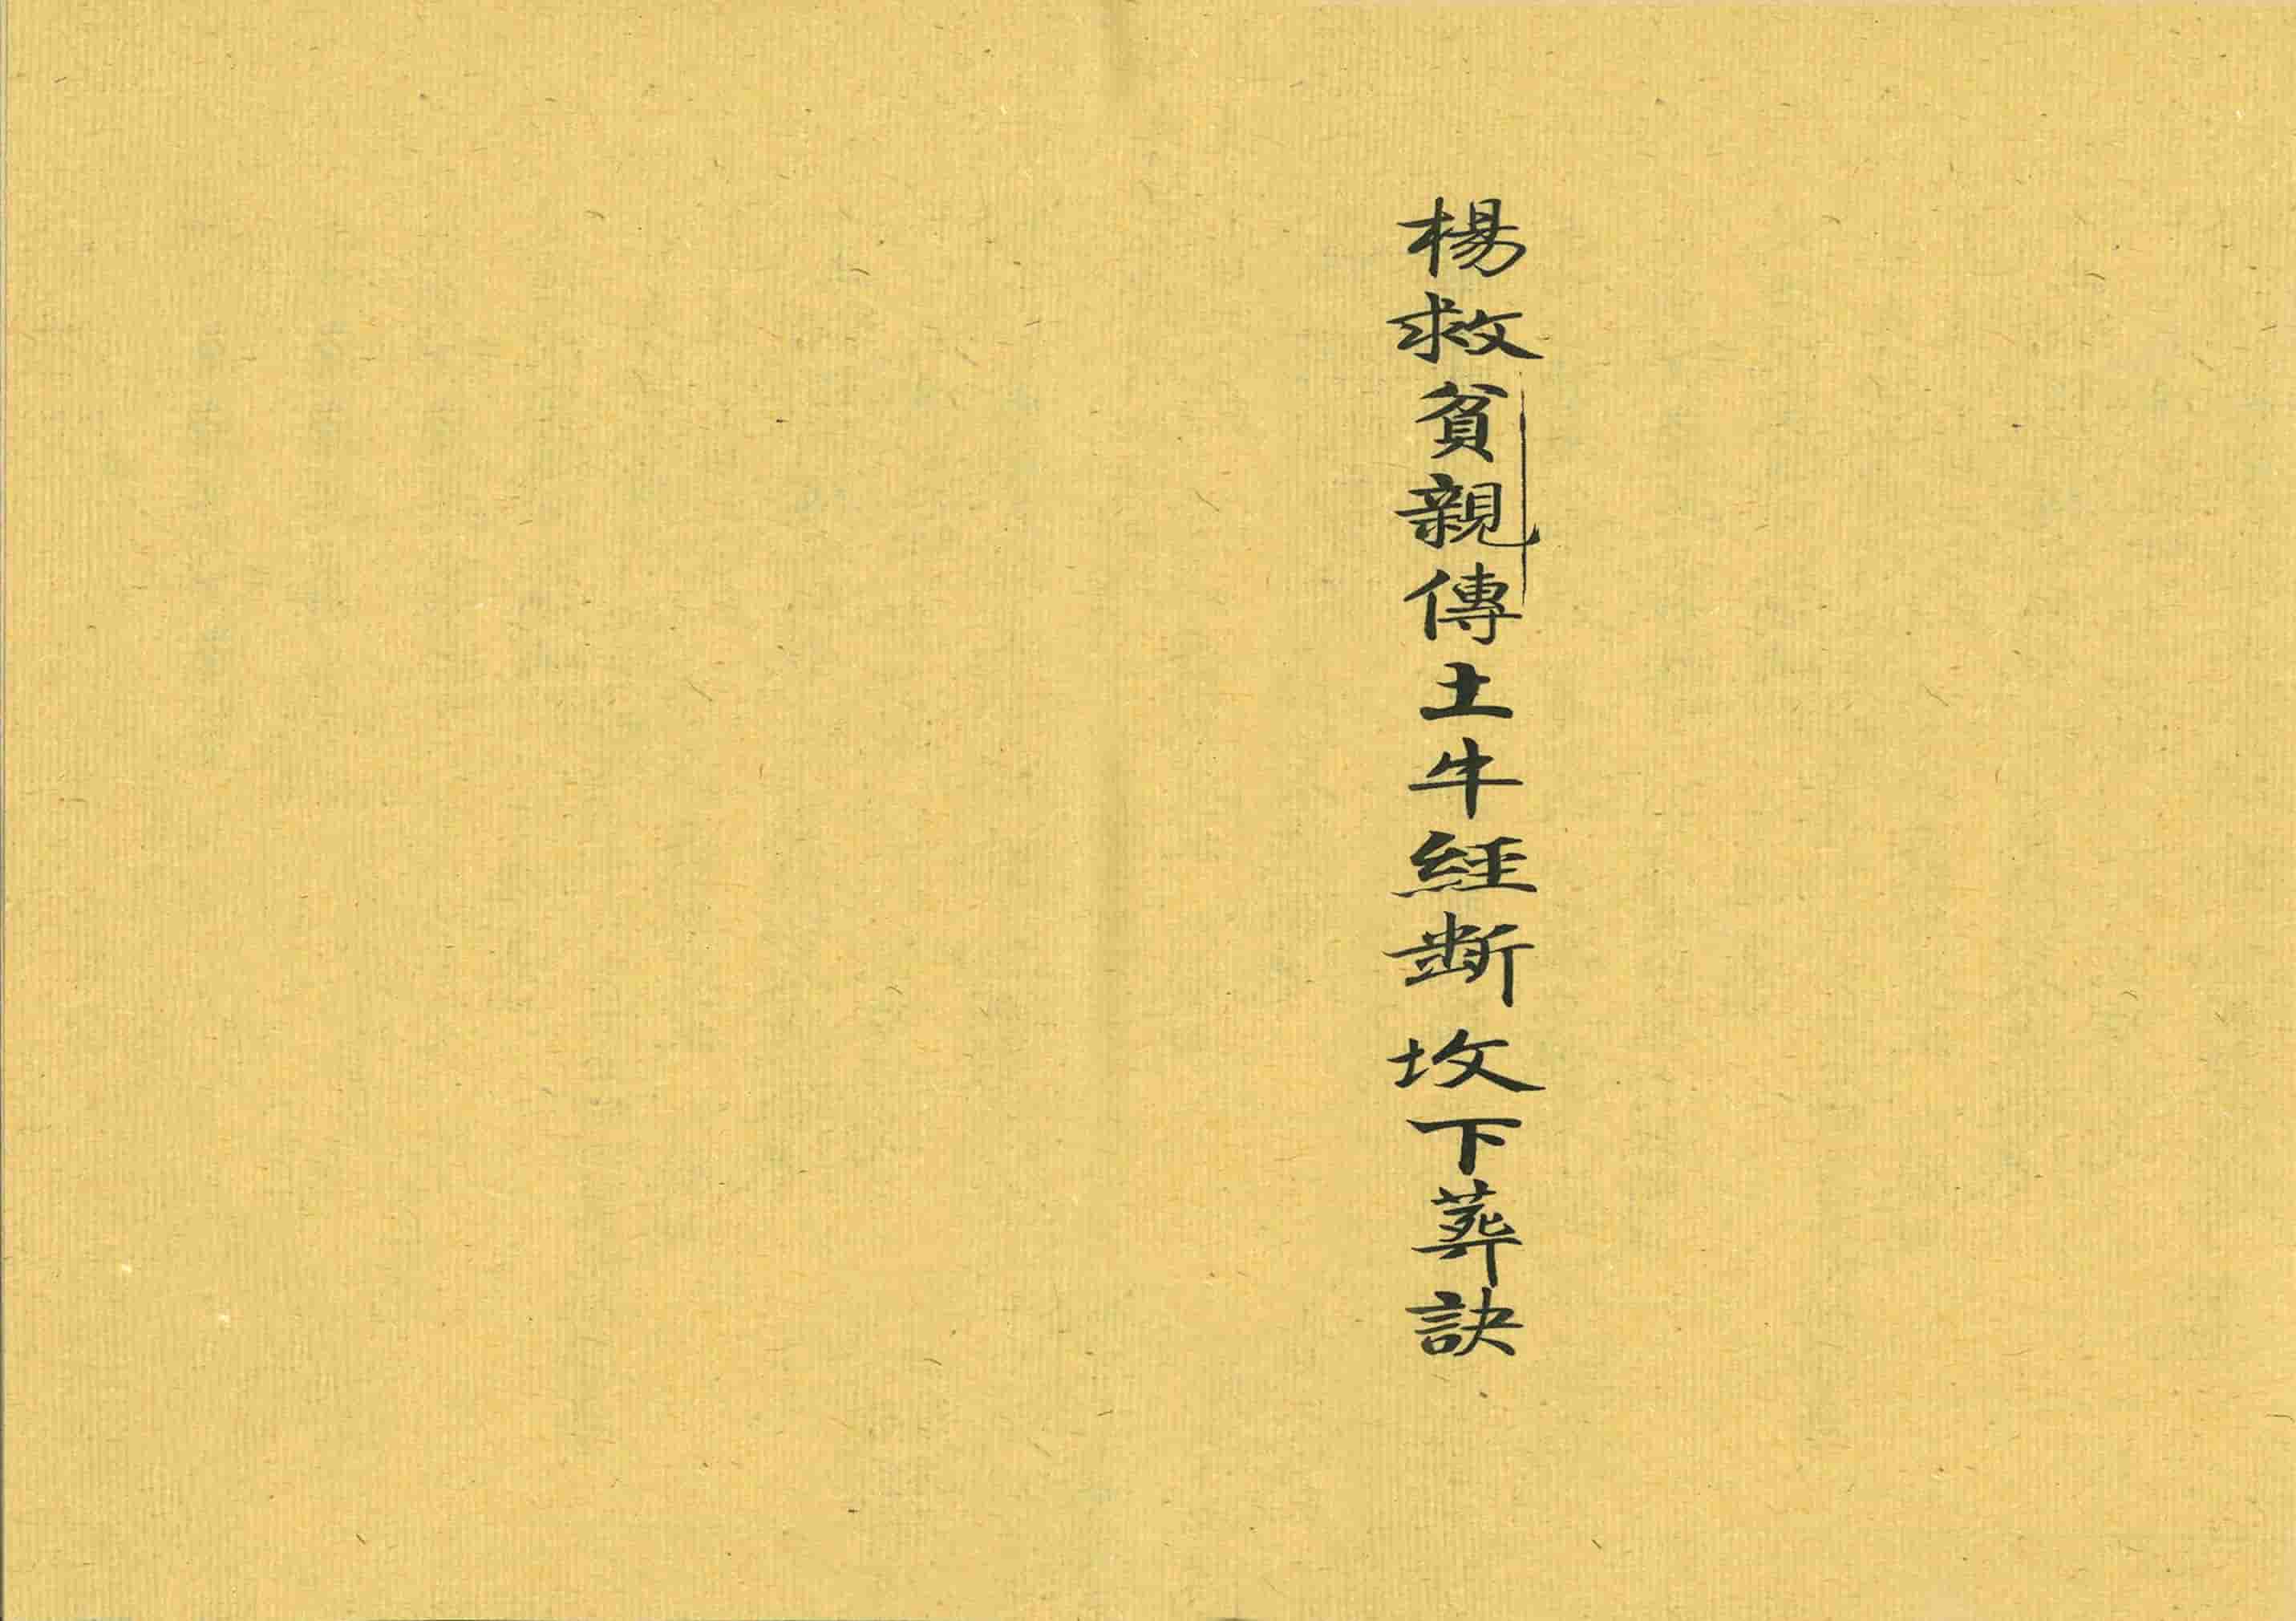 楊救貧親傳土牛經斷坟下葬訣